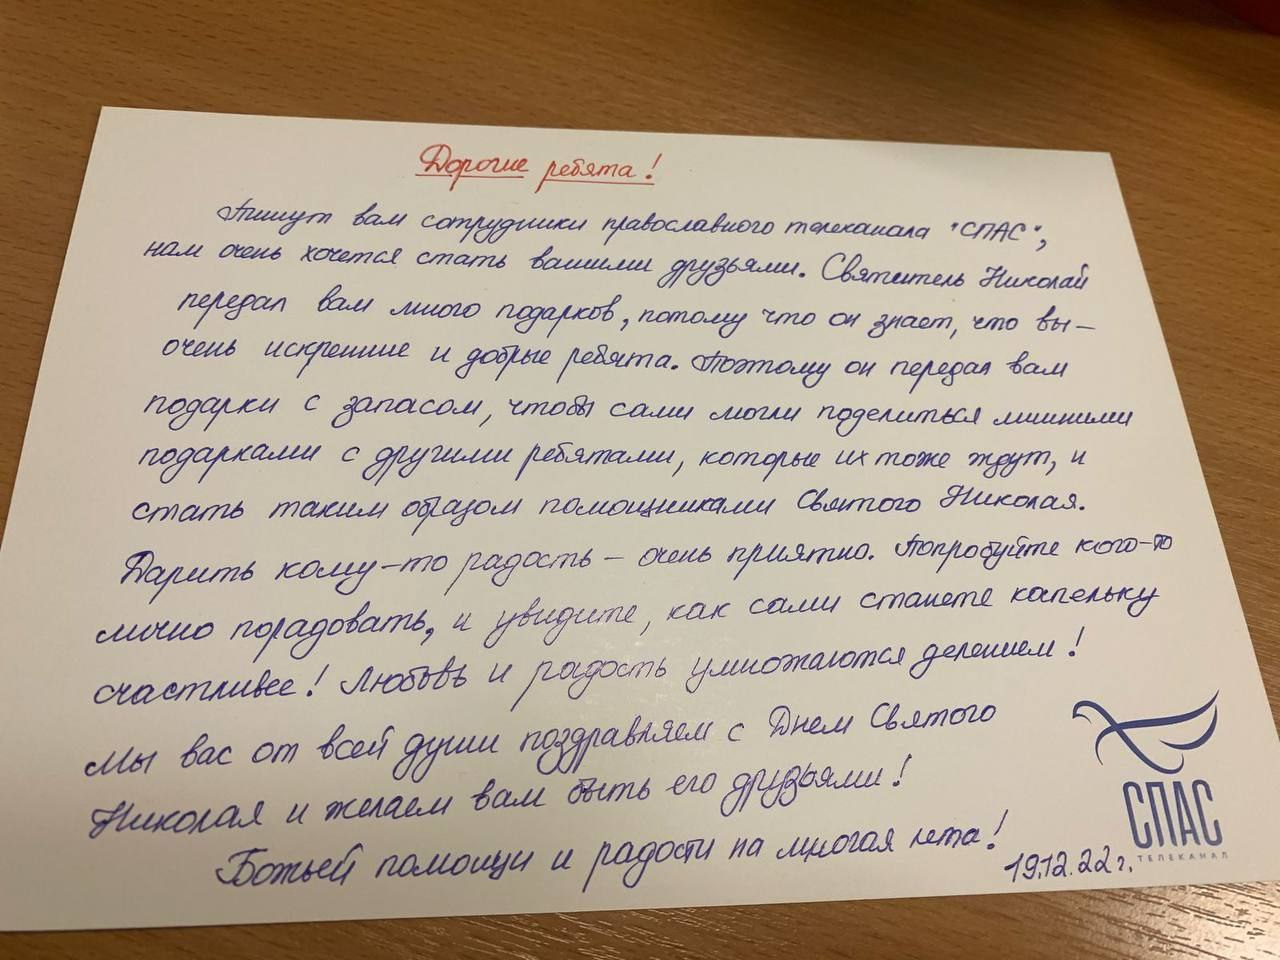 Дорогие ребята!
Пишут вам сотрудники православного телеканала "СПАС",
нам очень хочется стать вашими друзьями. Святитель Николай
передал вам много подарков, потому что он знает, что вы –
очень искренние и добрые ребята. Поэтому он передал вам
подарки с запасом, чтобы сами могли поделиться лишними
подарками с другими ребятами, которые их тоже ждут, и
стать таким образом помощниками Святого Николая.
Дарить кому-то радость – очень приятно. Попробуйте кого-то
лично порадовать, и увидите, как сами станете капельку
счастливее! Любовь и радость умножаются делением!
Мы вас от всей души поздравляем с Днем Святого
Николая и желаем вам быть его друзьями!
Божьей помощи и радости на многая лета!
19.12.22г.
СПАС
ТЕЛЕКАНАЛ